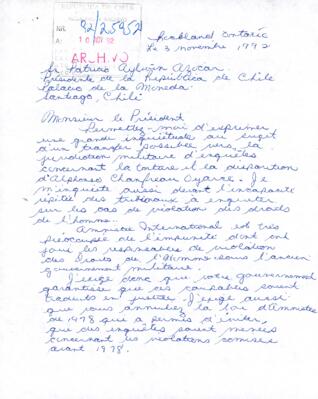 REPUBLICA DE CHILE
NR. 92/25952
10 92
ARCHIVO
Ontario
Le 3 novembre, 1992
Sr Patricio Aylwin Azocar
Présidente de la República de Chile
Palacio de la Moneda
Santiago, Chili
Monsieur le Président
Permettez-moi d'exprimer
une grande inquiétude au sujet
d'un transfer possible vers la
juridiction militaire d'enquêtes
concernant la torture et la disparition
d'Alphonso Chanfreau Oyarce. Je
m'inquiète aussi devant l'incapacité
répétée des tribunaux à enquêter
sur les cas de violation des droits
de l'homme.
Amnistie International est très
préoccupé de l'impunité dont ont
joui les responsables de violation
des Droits de l'Homme sous l'ancien
gouvernement militaire.
J'exige donc que votre gouvernement
garantisse que ces coupables soient
traduits en justice. J'exige aussi
que vous annuliez la loi d'Amnistie
de 1978 qui a permis d'éviter
que des enquêtes soient menées
concernant les violations comises
avant 1978.